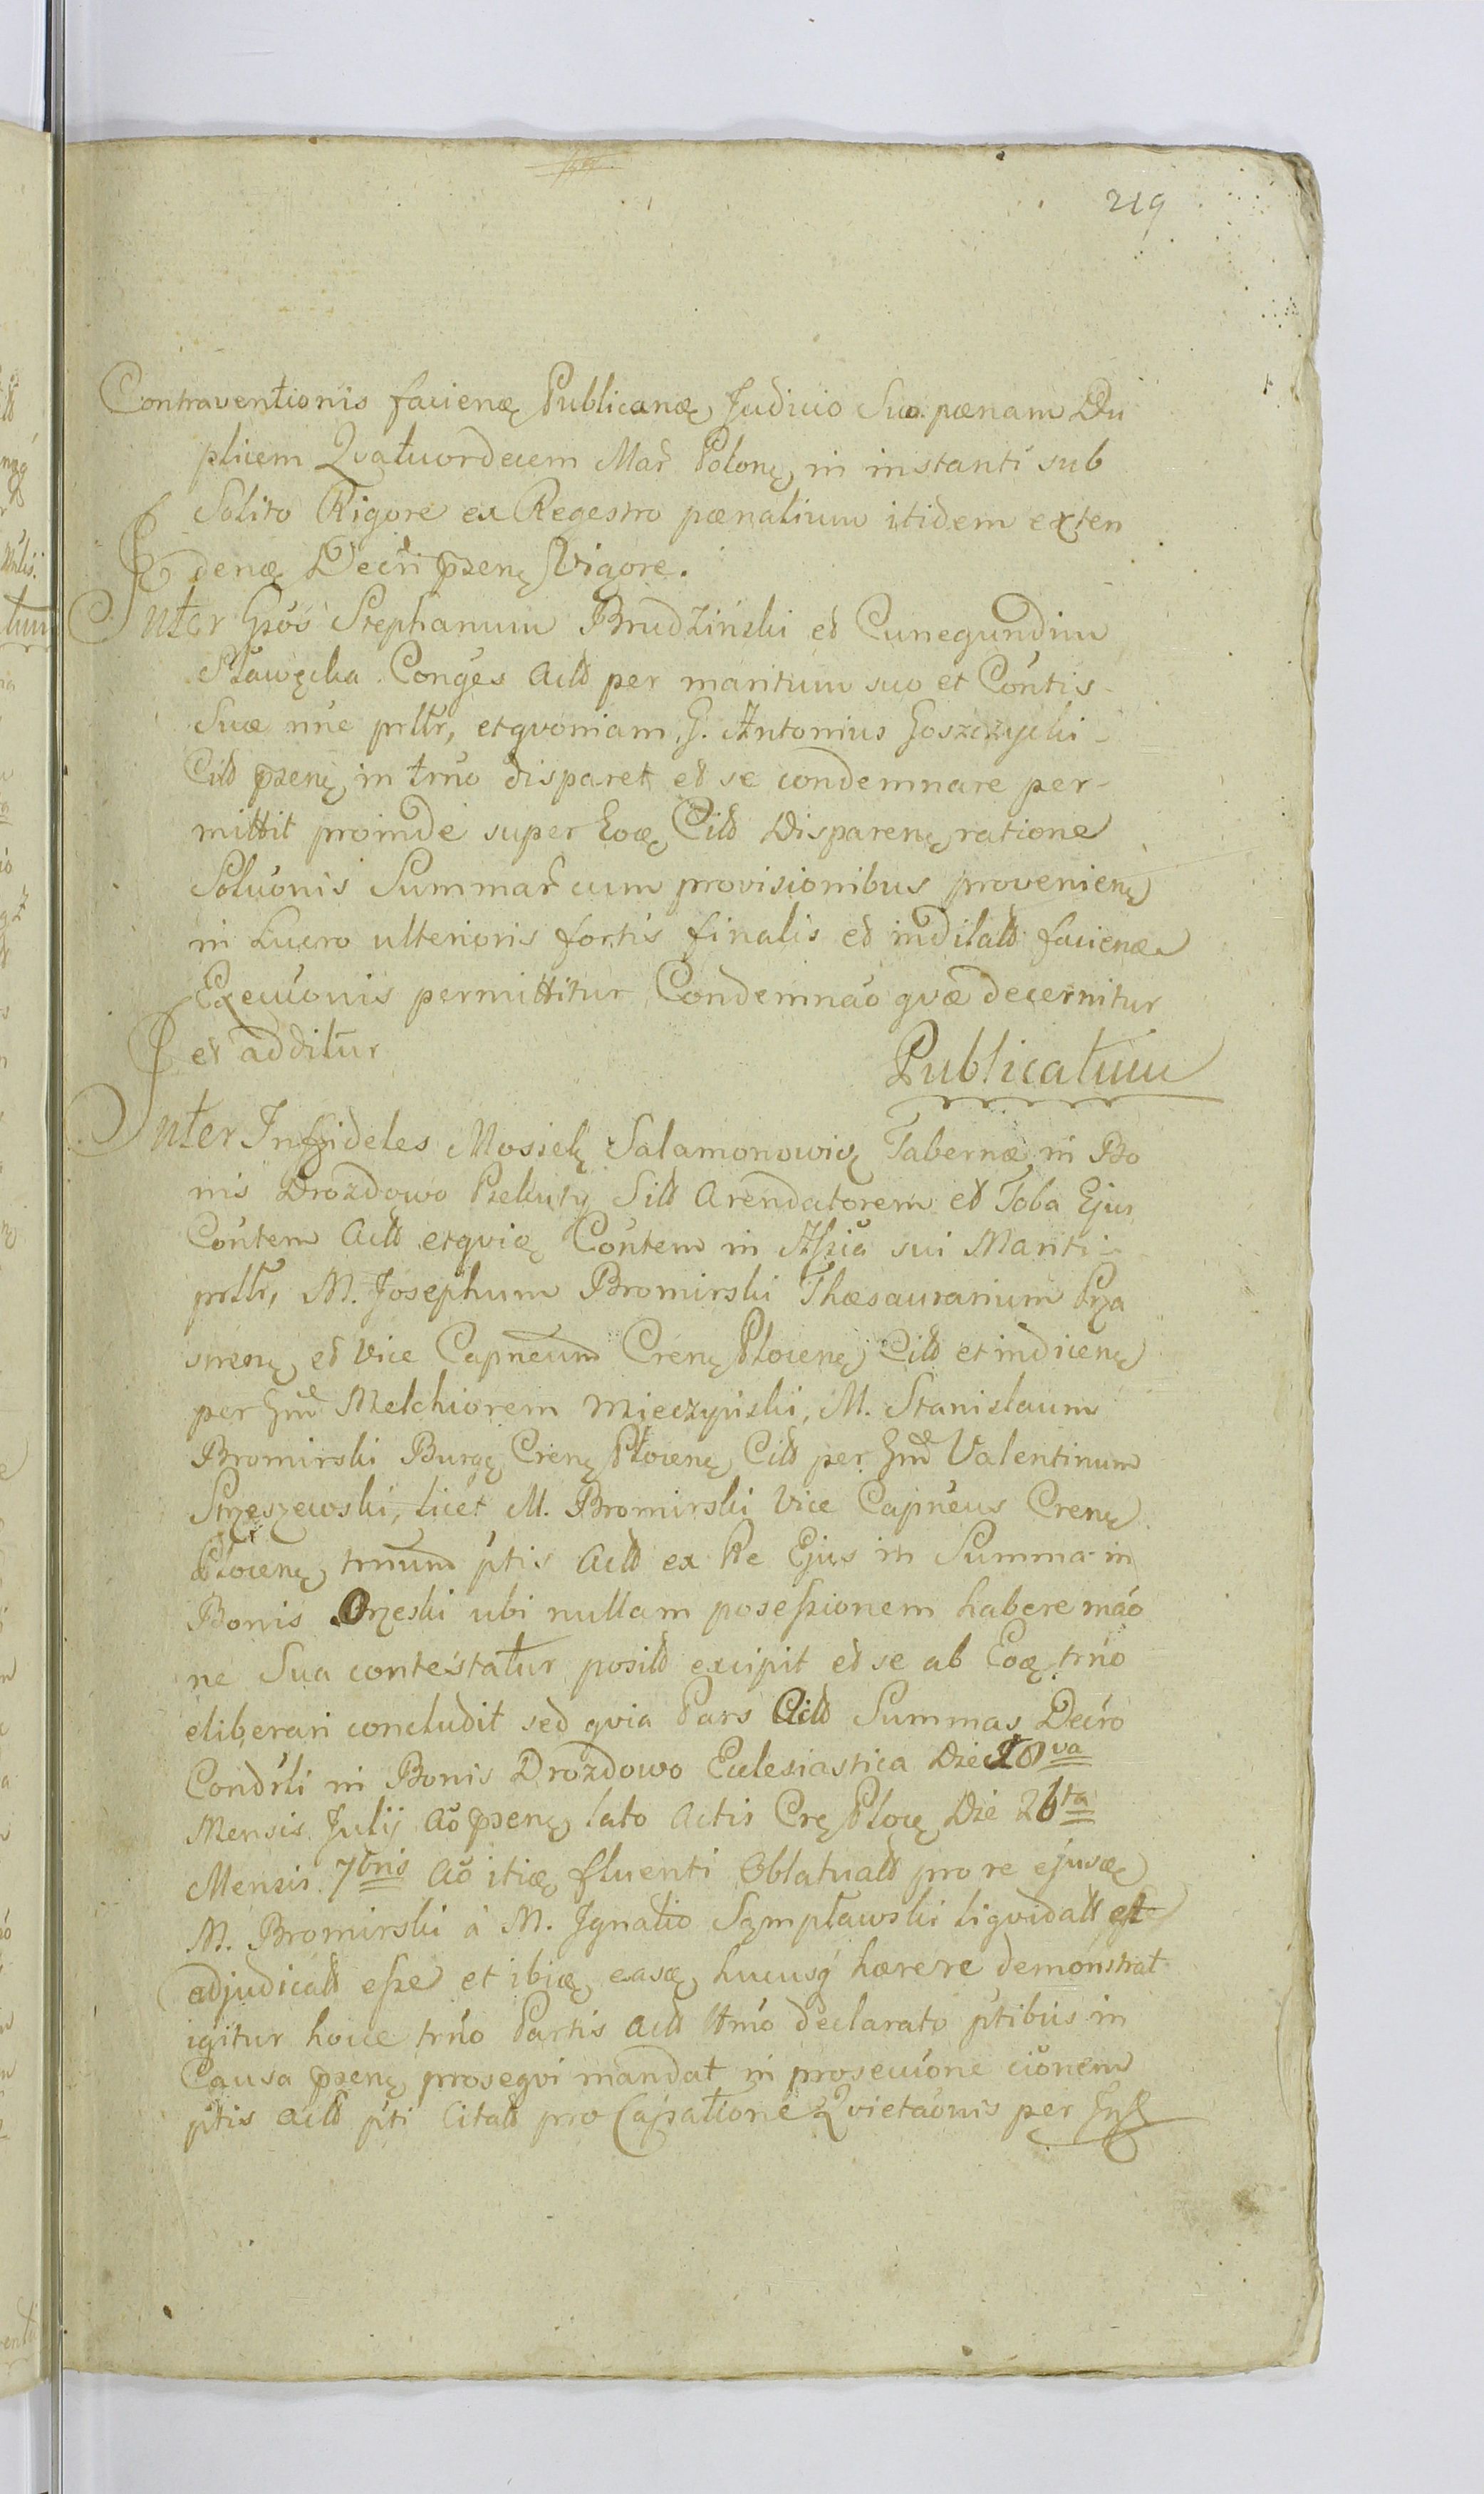 219
Contraventionis facienæ Publicanæ Judicio Suo pænam Du
plicem Qvatuordecem Mar̃ Polonę in instanti sub
Solito Rigore ex Regestro pænalium itidem exten
denæ Decři p̃senę Vigore.
Inter Gšos Stephanum Brudziński et Cunegundim
Sławęcka Conges Actt per maritum suo et Contis
Suæ nñe prltr, etqvoniam G. Antonius Goszczycki
Citt p̃senę in trñô disparet et se condemnare per-
mittit proinde super Eoæ Citt Disparenę ratione
Soluonis Summar̃ cum provisionibus provenienę
in Lucro ulterioris fortis finalis et indilatt facienæ
Execuonis permittitur Condemnaõ qvæ decernitur
et additur
Publicatum
Inter Infideles Mosiek Salamonowicz Tabernæ in Bo
nis Drozdowo Pzekuty Sitt Arendatorem et Toba Ejus
Contem Actt etqvię Contem in Assia sui Mariti
prltr, M. Josephum Bromirski Thæsaurarium Pra
snenę et Vice Capneum Crenę Plocenę Citt et indicenę
per Gnd Melchiorem Mieczyński, M. Stanislaum
Bromirski Burgę Crenę Plocenę Citt per Gnd Valentinum
Strzeszewski, licet M. Bromirski Vice Capneus Crenę
Plocenę trnum ptis Actt ex Re Ejus in Summa in
Bonis Orzeski ubi nullam posessionem habere mao
ne Sua contestatur positt excipit et se ab Eoæ trno
eliberari concludit sed qvia Pars Actt Summas Decro
Condrli in Bonis Drozdowo Ecclesiastica Die 10va
Mensis Julij Ao p̃senę lato Actis Crę Plocę Die 26ta
Mensis 7bris Ao itiæ fluenti Oblatuatt pro re ejusæ
M. Bromirski à M. Ignatio Szmpławski liqvidatt est
adjudicatt esse et ibiæ easæ hucusq hærere demonstrat
igitur hocce trno Partis Actt ttmo declarato ptibus in
Causa p̃senę proseqvi mandat in prosecuone cionem
ptis actt pti Citatt pro Cassatione Qvietaonis per